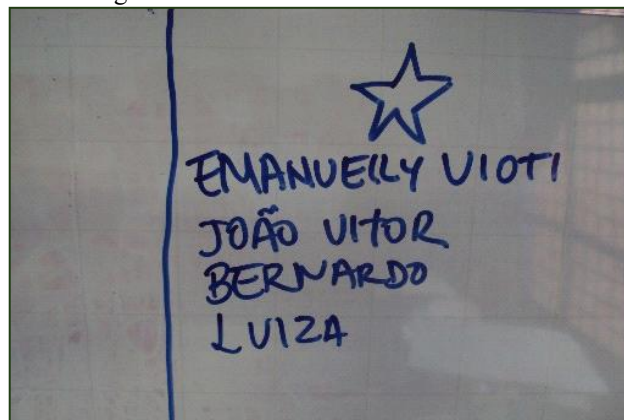 EMANUELLY VIOTI
JOÃO VITOR
BERNARDO
LUIZA